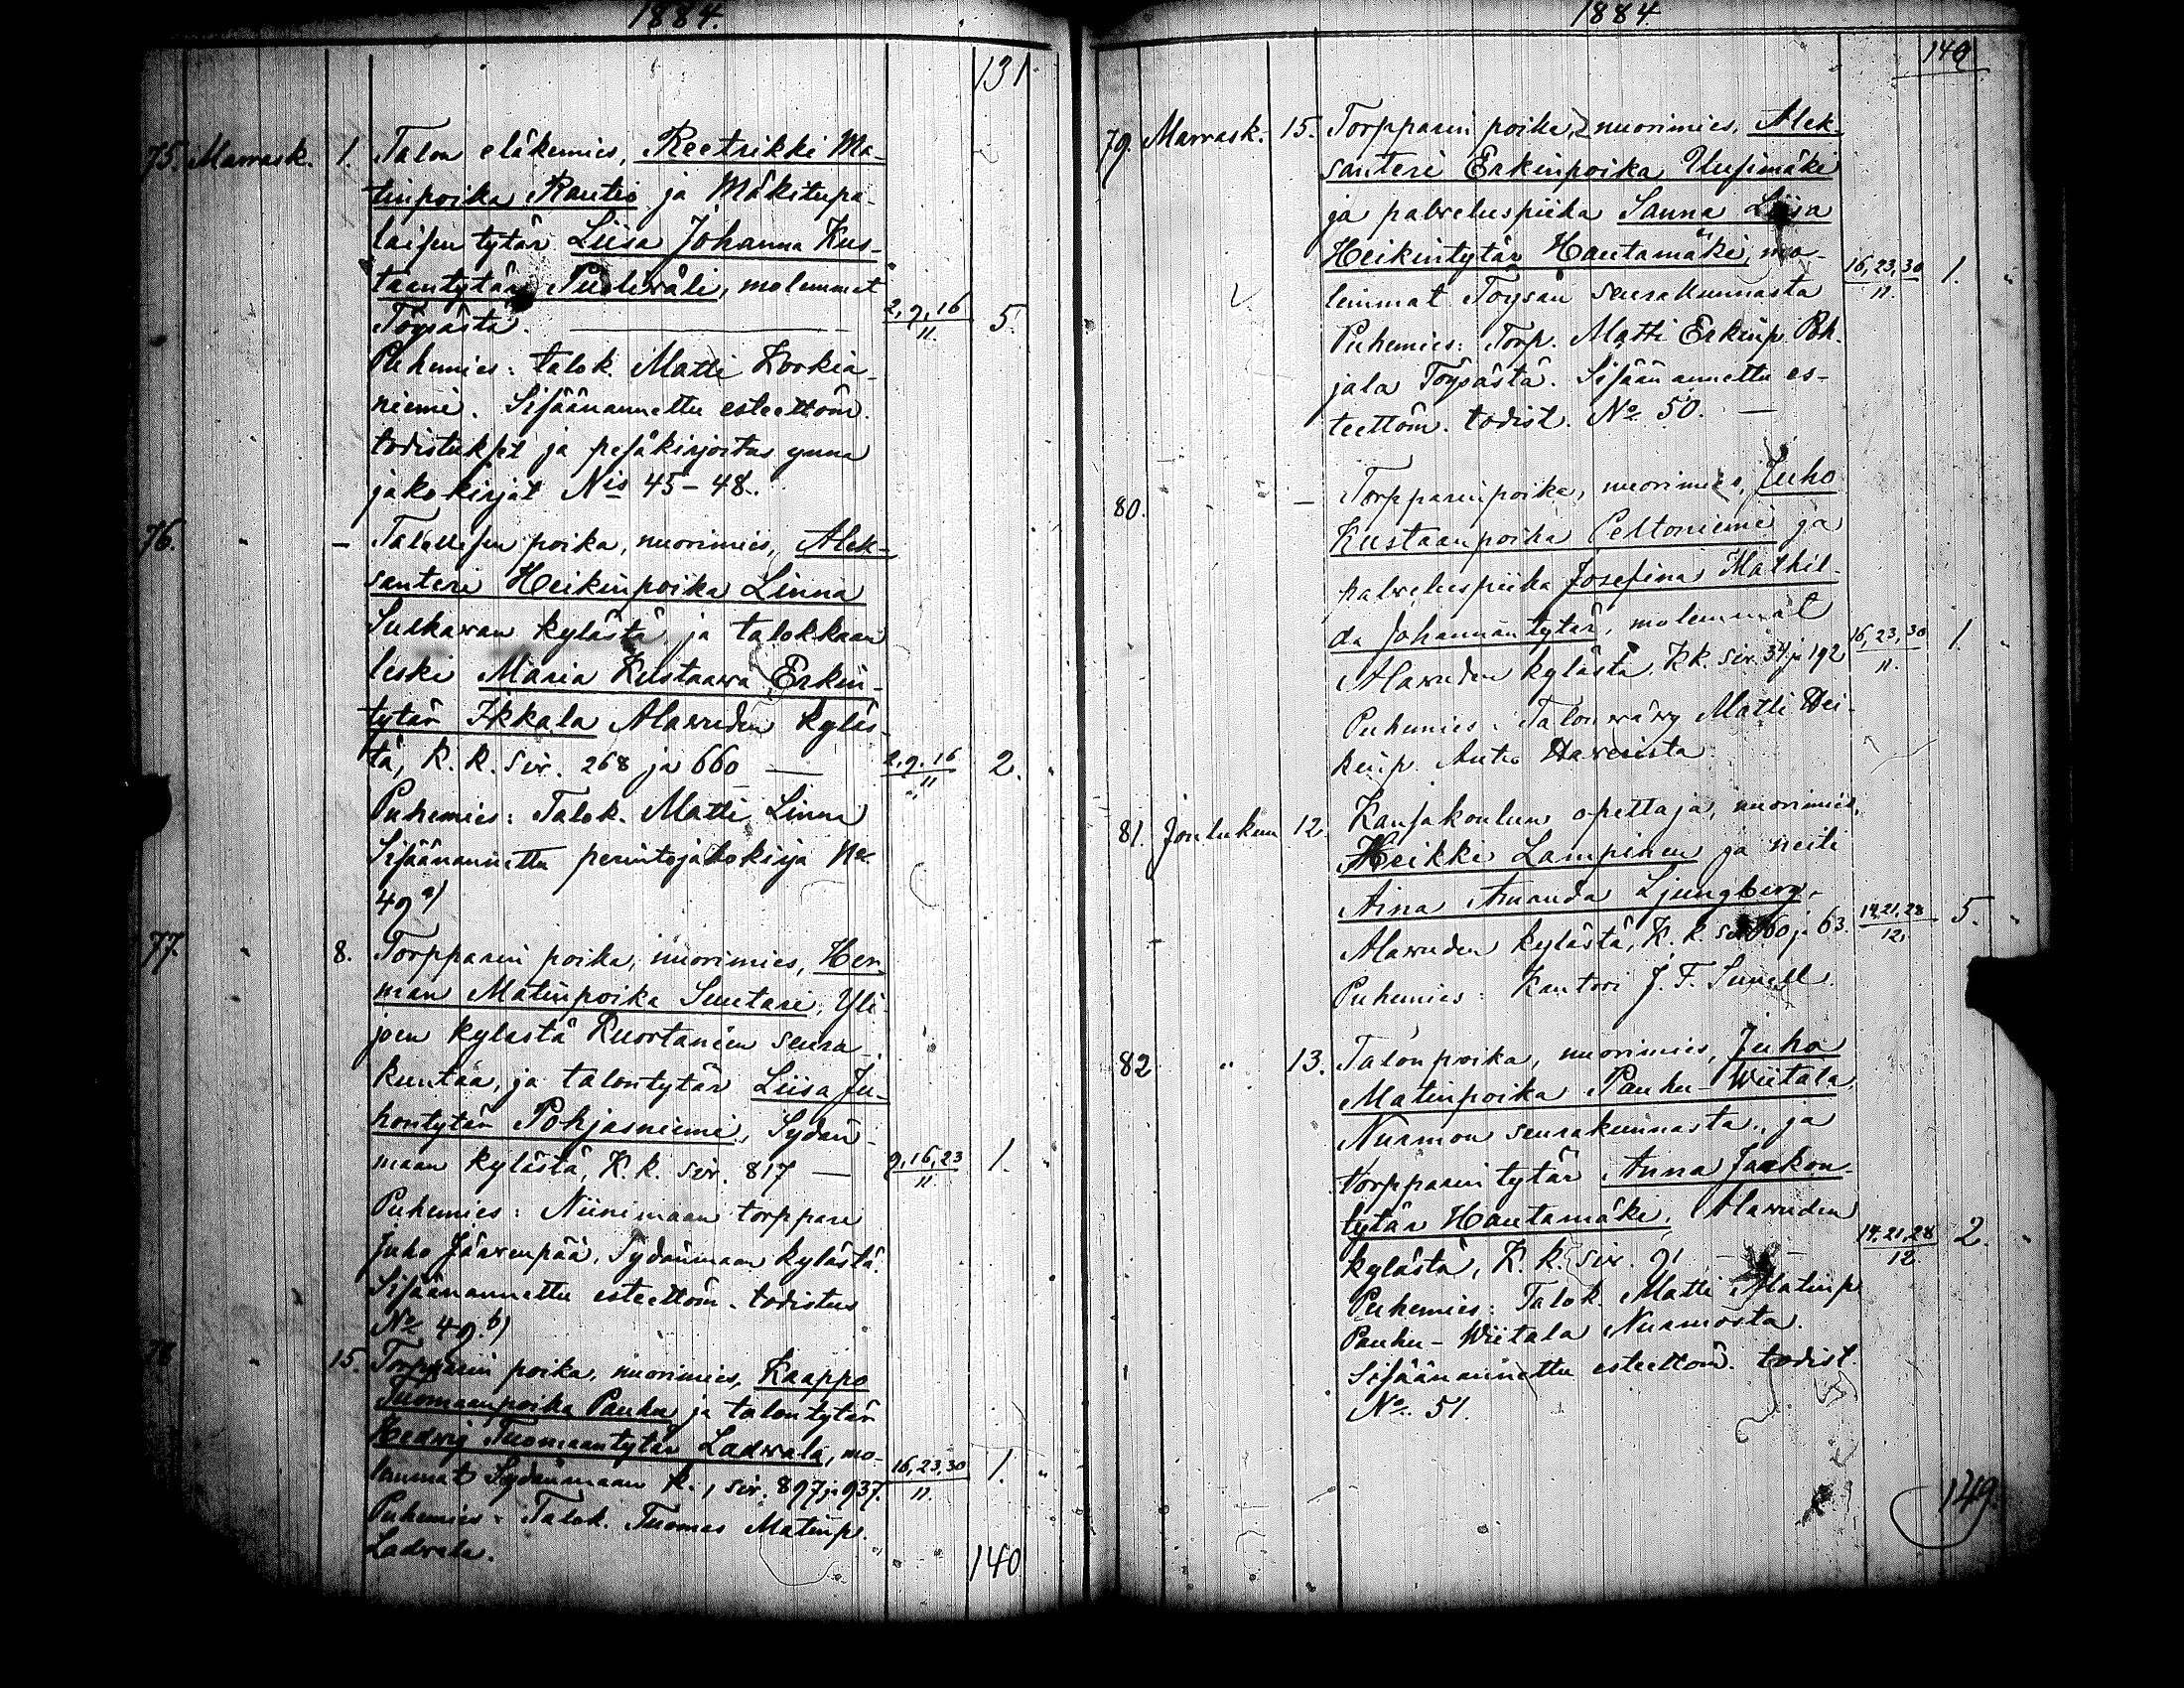 1884.
131
75. Marrask. 1. Talon eläkemies, Reetrikki Ma-
tinpoika Rautio ja Mäkitupa-
laisen tytär Liisa Johanna Kus-
taantytär Puoliwäli, molemmat
Töysästä. 2, 9, 16 / 11. 5.
Puhemies: talok. Matti Korkia-
niemi. Sisäänannettu esteettöm.
todistukset ja pesäkirjoitus ynnä
jakokirjat Nis 45-48.
76. " - Talollisen poika, nuorimies, Alek-
santeri Heikinpoika Linna
Sulkawan kylästä ja talokkaan
leski Maria Kustaawa Erkin-
tytär Ikkala Alawuden kyläs-
tä, K. K. siv. 268 ja 660 2, 9, 16 / 11 2. "
Puhemies: Talok. Matti Linna
Sisäänannettu perintöjakokirja No
49 a)
77. " 8. Torpparin poika, nuorimies, Her-
man Matinpoika Suutari, Yli-
joen kylästä Kuortaneen seura-
kuntaa, ja talontytär Liisa Ju-
hontytär Pohjasniemi, Sydän-
maan kylästä, K. k. siv. 817 9, 16, 23 / 11. 1. "
Puhemies: Niinimaan torppari
Juho Jäärenpää, Sydänmaan kylästä.
Sisäänannettu esteettöm. todistus
No 49. b)
78 " 15. Torpparin poika, nuorimies, Kaappo
Tuomaanpoika Pauhu ja talontytär
Hedwig Tuomaantytär Ladwala, mo-
lemmat Sydänmaan k., siv. 897 ja 937. 16, 23, 30 / 11. 1. "
Puhemies: Talok. Tuomas Matinp.
Ladwala.
140
1884
140
79. Marrask. 15. Torpparin poika, nuorimies, Alek-
santeri Erkinpoika Uusimäki
ja palweluspiika Sanna Liisa
Heikintytär Hautamäki, mo-
lemmat Töysän seurakunnasta 16, 23, 30 / 11. 1. "
Puhemies: Torp. Matti Erkinp. Poh-
jala Töysästä. Sisäänannettu es-
teettöm. todist. No 50.
80. - Torpparinpoika, nuorimies, Juho
Kustaanpoika Peltoniemi ja
palweluspiika Josefina Mathil-
da Johannantytär, molemmat
Alawuden kylästä. K k. siv. 34 ja 192 16, 23, 30 / 11. 1. "
Puhemies: Talonwäwy Matti Hei-
kinp.
81. Joulukuu 12 Kansakoulun opettaja, nuorimies,
Heikki Lampinen ja neiti
Aina Amanda Ljungberg,
Alawuden kylästä, K. k. siv. 60 ja 63. 14, 21, 28 / 12. 5. "
Puhemies: Kantori J. F. Sunell.
82 " 13. Talonpoika, nuorimies, Juho
Matinpoika Pauhu-Wiitala,
Nurmon seurakunnasta, ja
torpparin tytär Anna Jaakon-
tytär Hautamäki, Alawuden
kylästä, K. k. siv. 91 14, 21, 28 / 12. 2. "
Puhemies: Talok. Matti Matinp
Pauhu-Wiitala Nurmosta.
Sisäänannettu esteettöm. todist.
No. 51.
149.